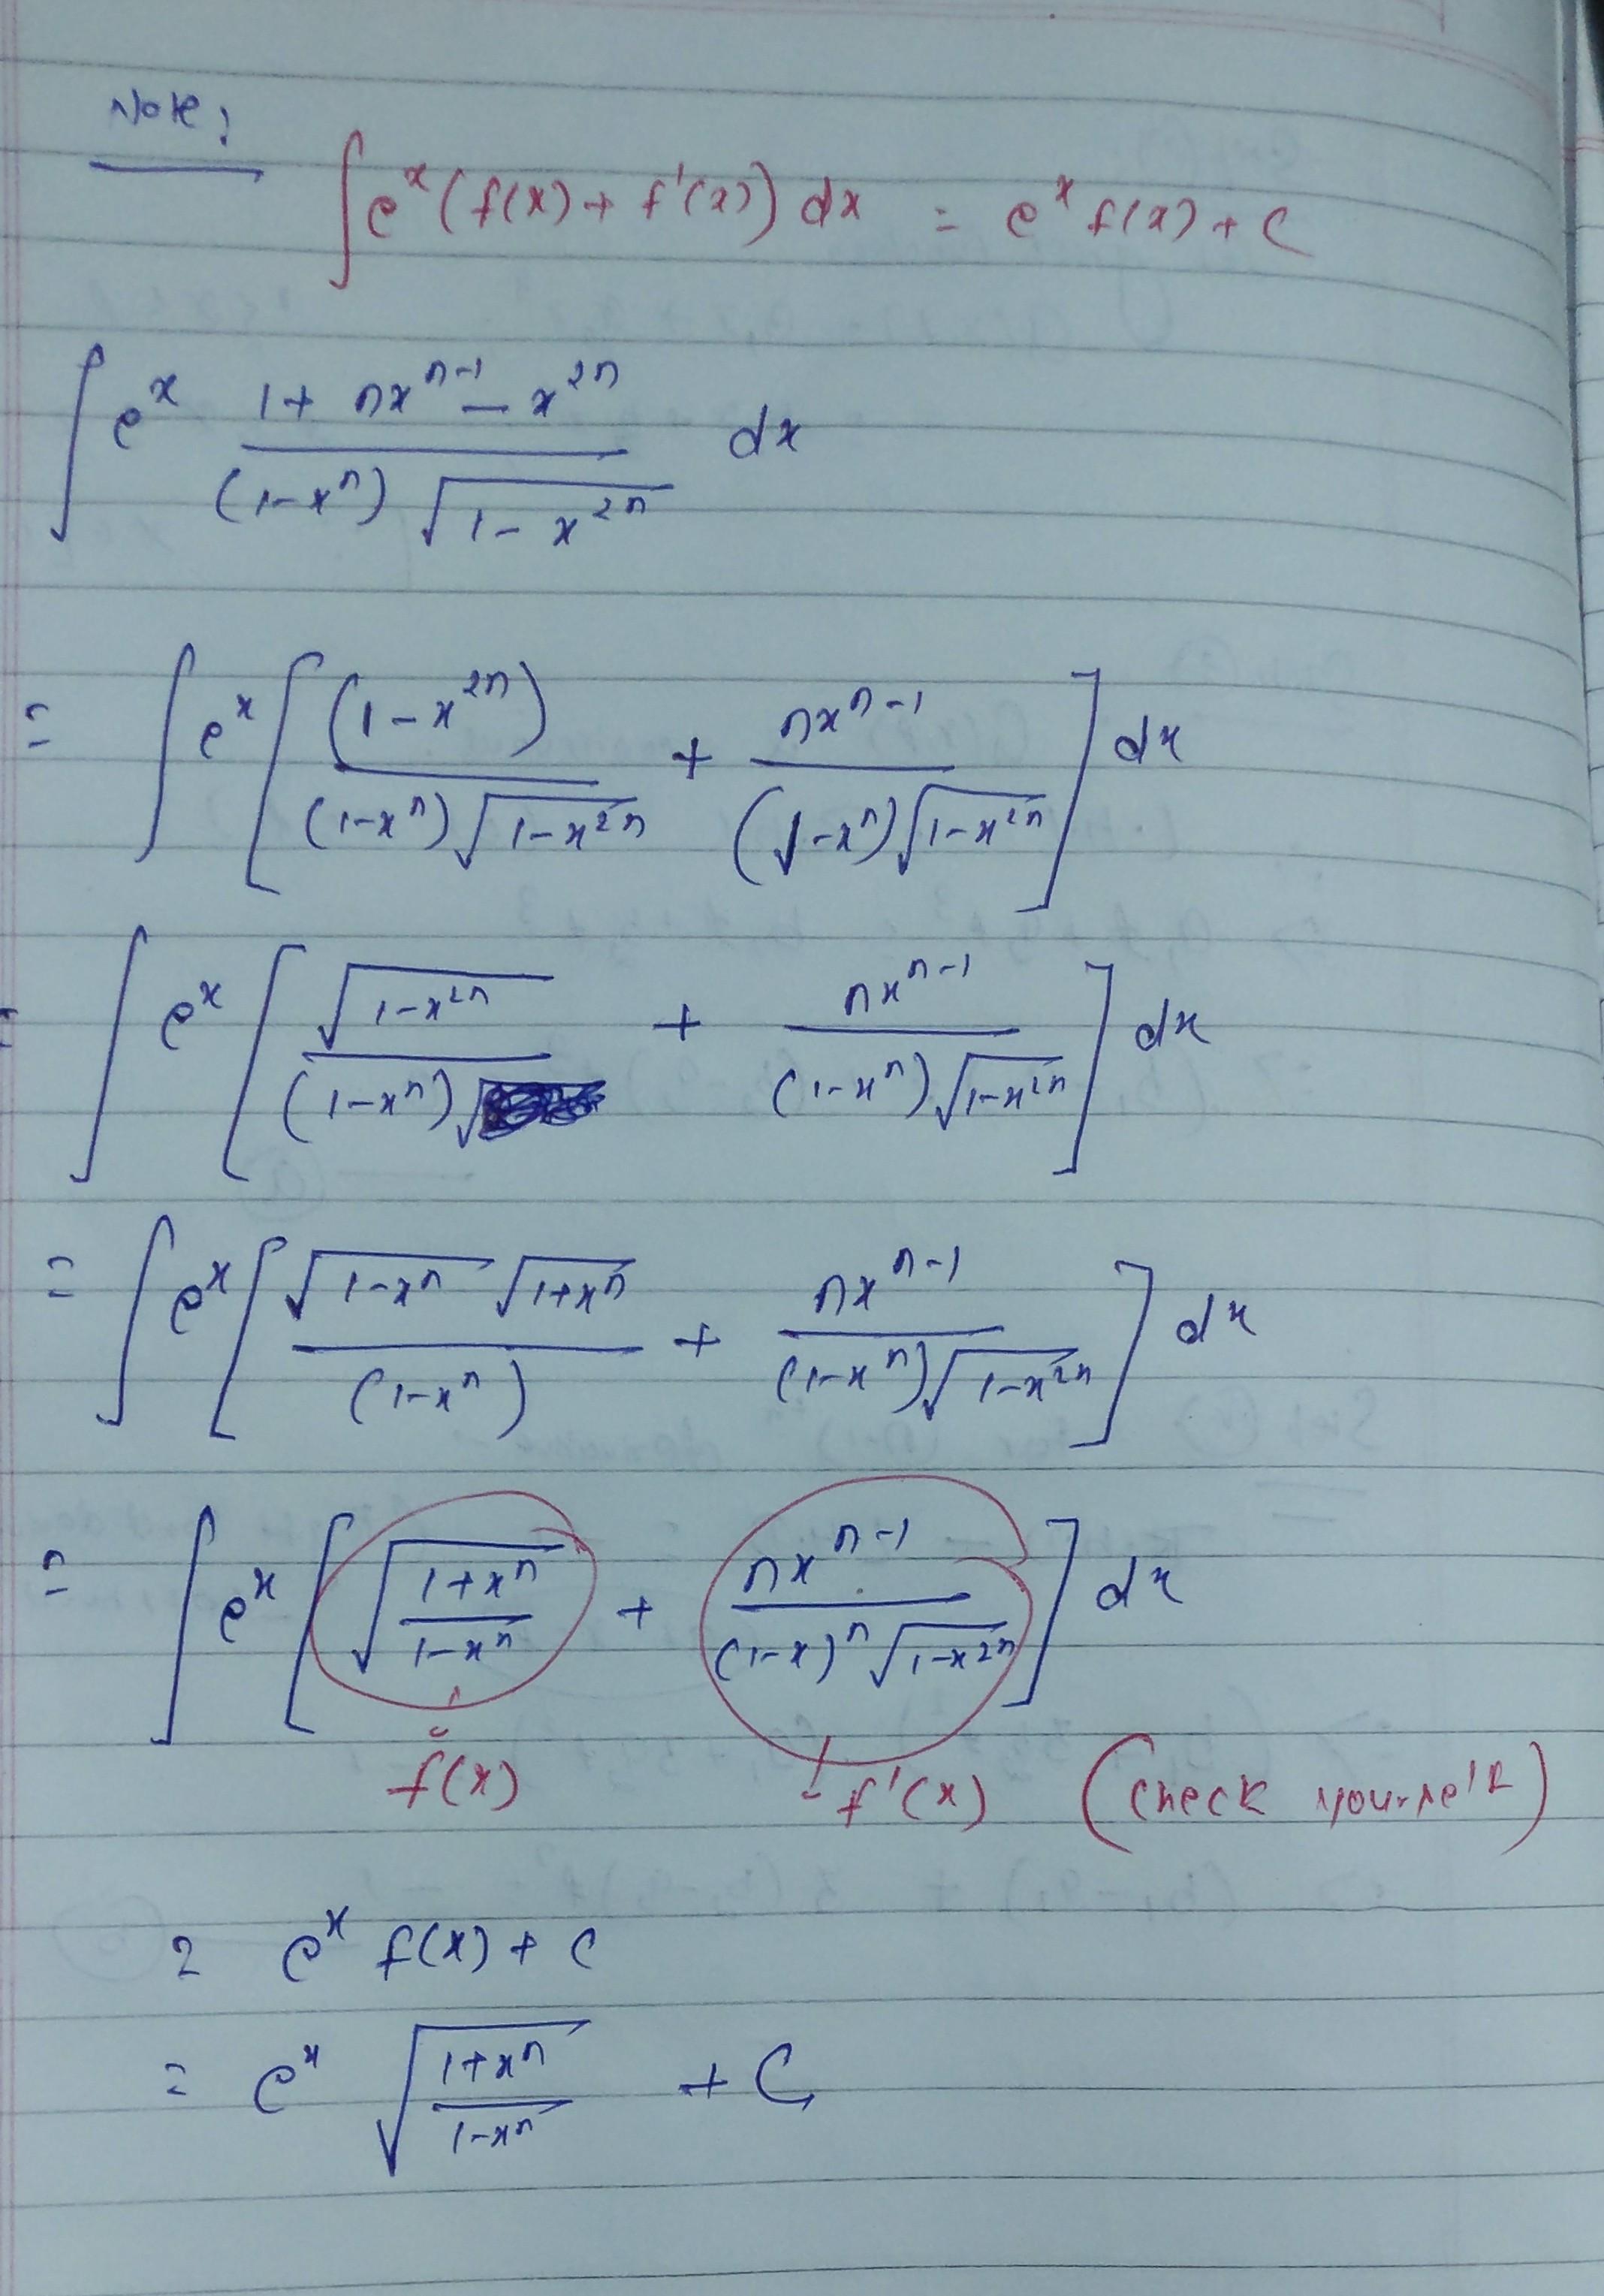 Note:
∫ e^x (f(x) + f'(x)) dx = e^x f(x) + c
∫ e^x (1 + nx^(n-1) - x^(2n)) / ((1-x^n) √(1-x^(2n))) dx
= ∫ e^x [ (1-x^(2n)) / ((1-x^n) √(1-x^(2n))) + nx^(n-1) / ((1-x^n) √(1-x^(2n))) ] dx
= ∫ e^x [ √(1-x^(2n)) / (1-x^n) + nx^(n-1) / ((1-x^n) √(1-x^(2n))) ] dx
= ∫ e^x [ √(1-x^n) √(1+x^n) / (1-x^n) + nx^(n-1) / ((1-x^n) √(1-x^(2n))) ] dx
= ∫ e^x [ √((1+x^n)/(1-x^n)) + nx^(n-1) / ((1-x)^n √(1-x^(2n))) ] dx
f(x) f'(x) (Check yourself)
= e^x f(x) + c
= e^x √((1+x^n)/(1-x^n)) + C